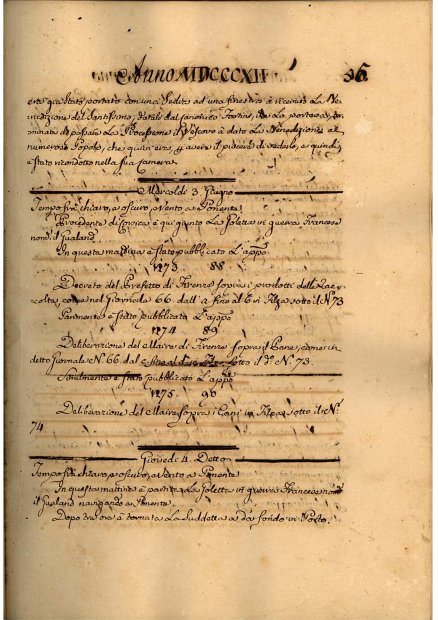 Anno MDCCCXII 56
era già stato portato con una Sedia ad una finestra à ricevere La Be-
nedizione del Santissimo, datali dal canonico
minata di passare La Processione il Vescovo à dato La Benedizione al
numeroso Popolo, che quivi era, per avere il piacere di vederlo, e quindi
è stato ricondotto nella sua Camera.
Mercoldì 3 Giugno
Tempo frà chiaro, e oscuro, e vento a Ponente
Procedente di Corsica è quì giunto La Goletta in guerra Francese
nom. il Gualand
In questa mattina è stato pubblicato L'appo
1273 88
Decreto del Prefetto di Firenze sopra i prodotti della Rac-
colta, come nel Giornale 66. dall' a fino al E in Filza sotto il N. 73
Parimente è stato pubblicato L'appo
1274 89
Deliberazione del Maire di Firenze sopra il Pane, come in
detto Giornale N. 66. dal sotto il d. N. 73
Finalmente è stato pubblicato L'appo
1275 90
Deliberazione del Maire sopra i Cani in Filza sotto il N.
74
Giovedì 4 Detto
Tempo frà chiaro, e oscuro, e vento a Ponente
In questa mattina è partita La Goletta in guerra Francese nom.
il Gualand navigando a Ponente.
Dopo tre ore è tornata La Suddetta a dar fondo in Porto.